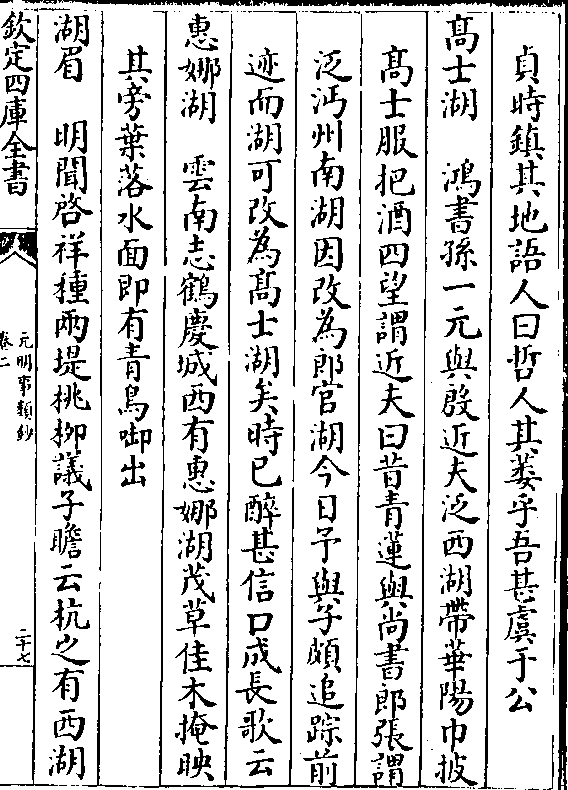 貞時鎮其地語人曰哲人其萎乎吾甚虞于公
髙士湖　鴻書孫一元與殷近夫泛西湖帶華陽巾披
髙士服把酒四望謂近夫曰昔青蓮與尚書郎張謂
泛沔州南湖因改為郎官湖今日予與子頗追踪前
迹而湖可改為髙士湖矣時已醉甚信口成長歌云
惠娜湖　雲南志鶴慶城西有惠娜湖茂草佳木掩映
其旁葉落水面即有青鳥啣出
湖眉　明聞啓祥種兩堤桃柳議子瞻云杭之有西湖
欽定四庫全書
元明事類鈔
卷二
二十七